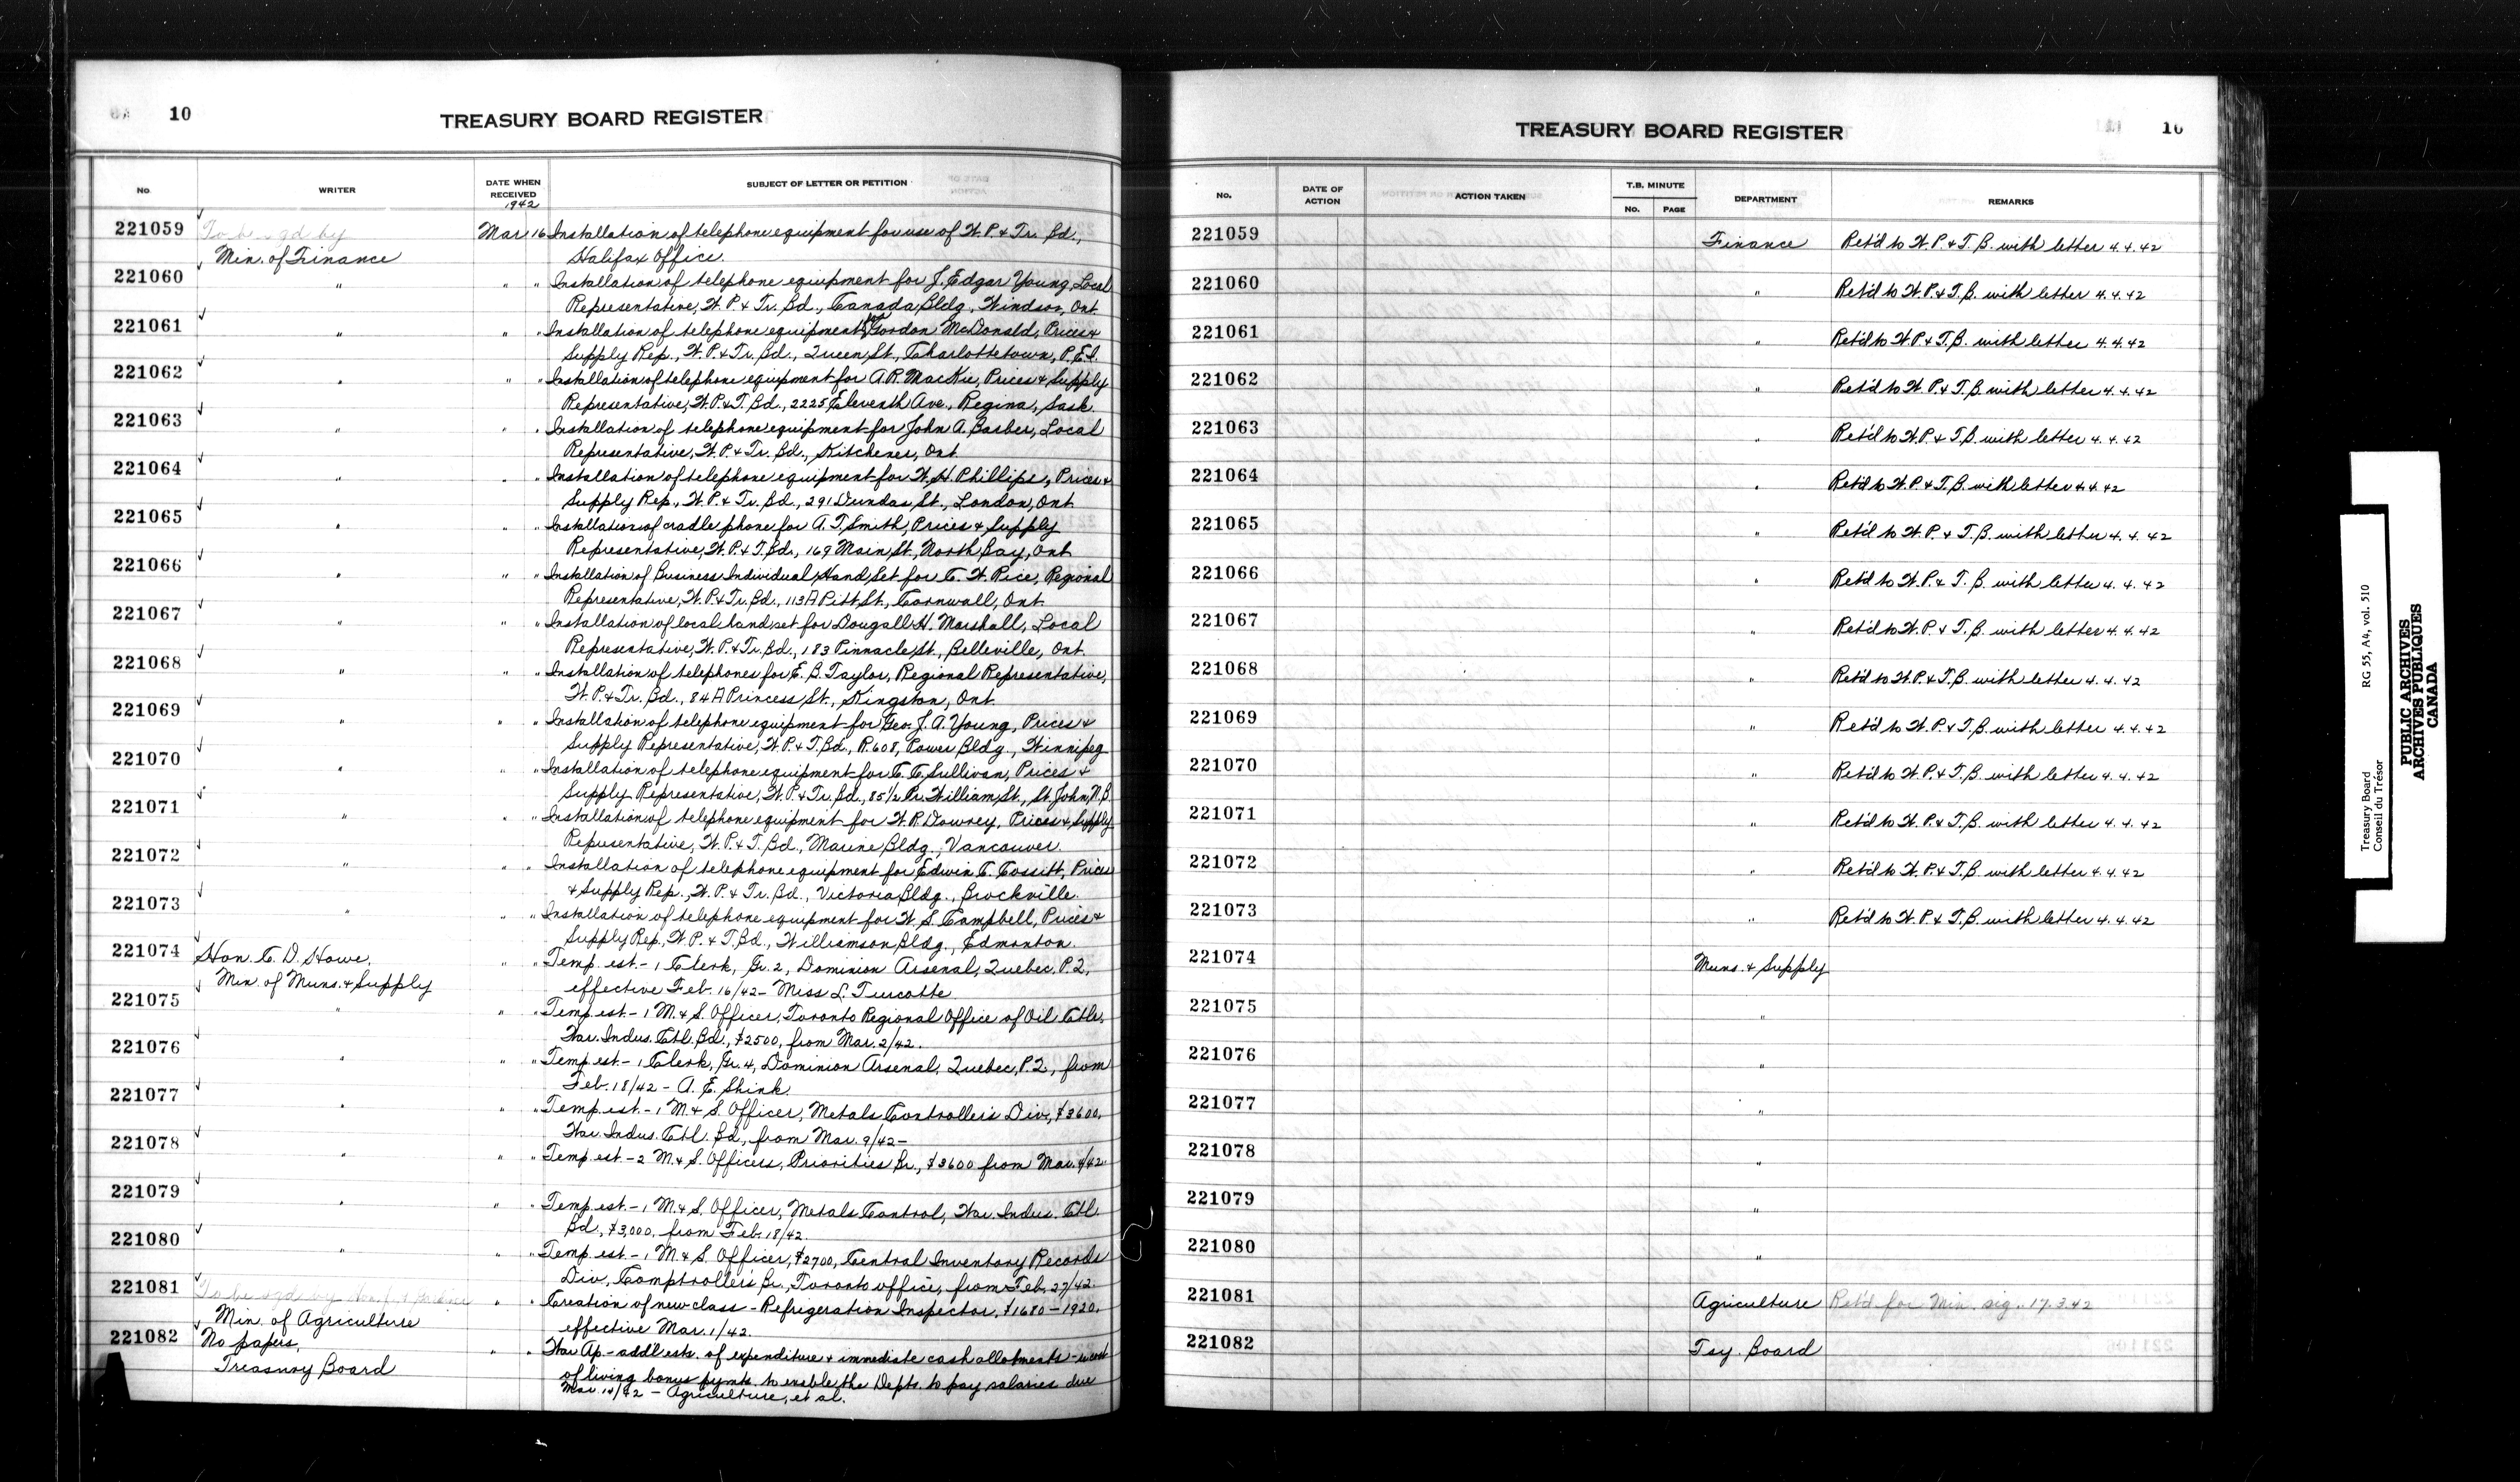 10
TREASURY BOARD REGISTER
No
WRITER
DATE WHEN RECEIVED
1942
SUBJECT OF LETTER OR PETITION
221059 To be sgd by Mar 16 Installation of telephone equipment for use of W.P. & Tr. Bd.,
Min. of Finance Halifax Office.
221060 " " " Installation of telephone equipment for J. Edgar Young, Local
Representative, W.P. & Tr. Bd., Canada Bldg., Windsor, Ont
221061 " " " Installation of telephone equipment for Gordon McDonald, Prices &
Supply Rep., W.P. & Tr. Bd., Queen St., Charlottetown, P.E.I.
221062 " " " Installation of telephone equipment for A.R. MacKie, Prices & Supply
Representative, W.P. & T. Bd., 2225 Eleventh Ave., Regina, Sask.
221063 " " " Installation of telephone equipment for John A. Barber, Local
Representative, W.P. & Tr. Bd., Kitchener, Ont
221064 " " " Installation of telephone equipment for W.H. Phillips, Prices &
Supply Rep., W.P. & Tr. Bd., 291 Dundas St., London, Ont
221065 " " " Installation of cradle phone for A.T. Smith, Prices & Supply
Representative, W.P. & T. Bd., 169 Main St., North Bay, Ont
221066 " " " Installation of Business Individual Hand Set for C.W. Rice, Regional
Representative, W.P. & Tr. Bd., 113A Pitt St., Cornwall, Ont.
221067 " " " Installation of local hand set for Dougall H. Marshall, Local
Representative, W.P. & Tr. Bd., 183 Pinnacle St., Belleville, Ont.
221068 " " " Installation of telephones for E.B. Taylor, Regional Representative,
W.P. & Tr. Bd., 84A Princess St., Kingston, Ont.
221069 " " " Installation of telephone equipment for Geo. J.A. Young, Prices &
Supply Representative, W.P. & T. Bd., R.608, Power Bldg., Winnipeg
221070 " " " Installation of telephone equipment for C.C. Sullivan, Prices &
Supply Representative, W.P. & Tr. Bd., 85 1/2 Pr. William St., St. John, N.B.
221071 " " " Installation of telephone equipment for W.R. Dowrey, Prices & Supply
Representative, W.P. & T. Bd., Marine Bldg., Vancouver.
221072 " " " Installation of telephone equipment for Edwin C. Cossitt, Prices
& Supply Rep., W.P. & Tr. Bd., Victoria Bldg., Brockville.
221073 " " " Installation of telephone equipment for W.S. Campbell, Prices &
Supply Rep., W.P. & T. Bd., Williamson Bldg., Edmonton.
221074 Hon. C.D. Howe, " " Temp. est. - 1 Clerk, Gr. 2, Dominion Arsenal, Quebec, P.Q.,
Min. of Muns. & Supply effective Feb. 16/42 - Miss L. Turcotte
221075 " " " Temp. est. - 1 M. & S. Officer, Toronto Regional Office of Oil Ctlr.,
War. Indus. Ctl. Bd., $2500, from Mar. 2/42.
221076 " " " Temp. est. - 1 Clerk, Gr. 4, Dominion Arsenal, Quebec, P.Q., from
Feb. 18/42 - A.E. Shink.
221077 " " " Temp. est. - 1 M. & S. Officer, Metals Controller's Div., $3600,
War. Indus. Ctl. Bd., from Mar. 9/42 -
221078 " " " Temp. est. - 2 M. & S. Officers, Priorities Br., $3600 from Mar. 4/42
221079 " " " Temp. est. - 1 M. & S. Officer, Metals Control, War. Indus. Ctl.
Bd., $3,000, from Feb. 18/42.
221080 " " " Temp. est. - 1 M. & S. Officer, $2700, Central Inventory Records
Div., Comptroller's Br., Toronto office, from Feb. 27/42.
221081 To be sgd by Hon. " " Creation of new class - Refrigeration Inspector, $1680 - 1920,
Min. of Agriculture effective Mar. 1/42.
221082 No papers, " " War Ap. - addl ests. of expenditure & immediate cash allotments -
Treasury Board of living bonus pymts. to enable the Depts. to pay salaries due
Mar. 14/42 - Agriculture, et al.
TREASURY BOARD REGISTER
10
No.
DATE OF ACTION
ACTION TAKEN
T.B. MINUTE
No. PAGE
DEPARTMENT
REMARKS
221059 Finance Ret'd to W.P. & T.B. with letter 4.4.42
221060 " Ret'd to W.P. & T.B. with letter 4.4.42
221061 " Ret'd to W.P. & T.B. with letter 4.4.42
221062 " Ret'd to W.P. & T.B. with letter 4.4.42
221063 " Ret'd to W.P. & T.B. with letter 4.4.42
221064 " Ret'd to W.P. & T.B. with letter 4.4.42
221065 " Ret'd to W.P. & T.B. with letter 4.4.42
221066 " Ret'd to W.P. & T.B. with letter 4.4.42
221067 " Ret'd to W.P. & T.B. with letter 4.4.42
221068 " Ret'd to W.P. & T.B. with letter 4.4.42
221069 " Ret'd to W.P. & T.B. with letter 4.4.42
221070 " Ret'd to W.P. & T.B. with letter 4.4.42
221071 " Ret'd to W.P. & T.B. with letter 4.4.42
221072 " Ret'd to W.P. & T.B. with letter 4.4.42
221073 " Ret'd to W.P. & T.B. with letter 4.4.42
221074 Muns. & Supply
221075 "
221076 "
221077 "
221078 "
221079 "
221080 "
221081 Agriculture Ret'd for Min. sig. 17.3.42
221082 Tsy. Board
Treasury Board RG 55, A4, vol. 510
Conseil du Trésor
PUBLIC ARCHIVES
ARCHIVES PUBLIQUES
CANADA